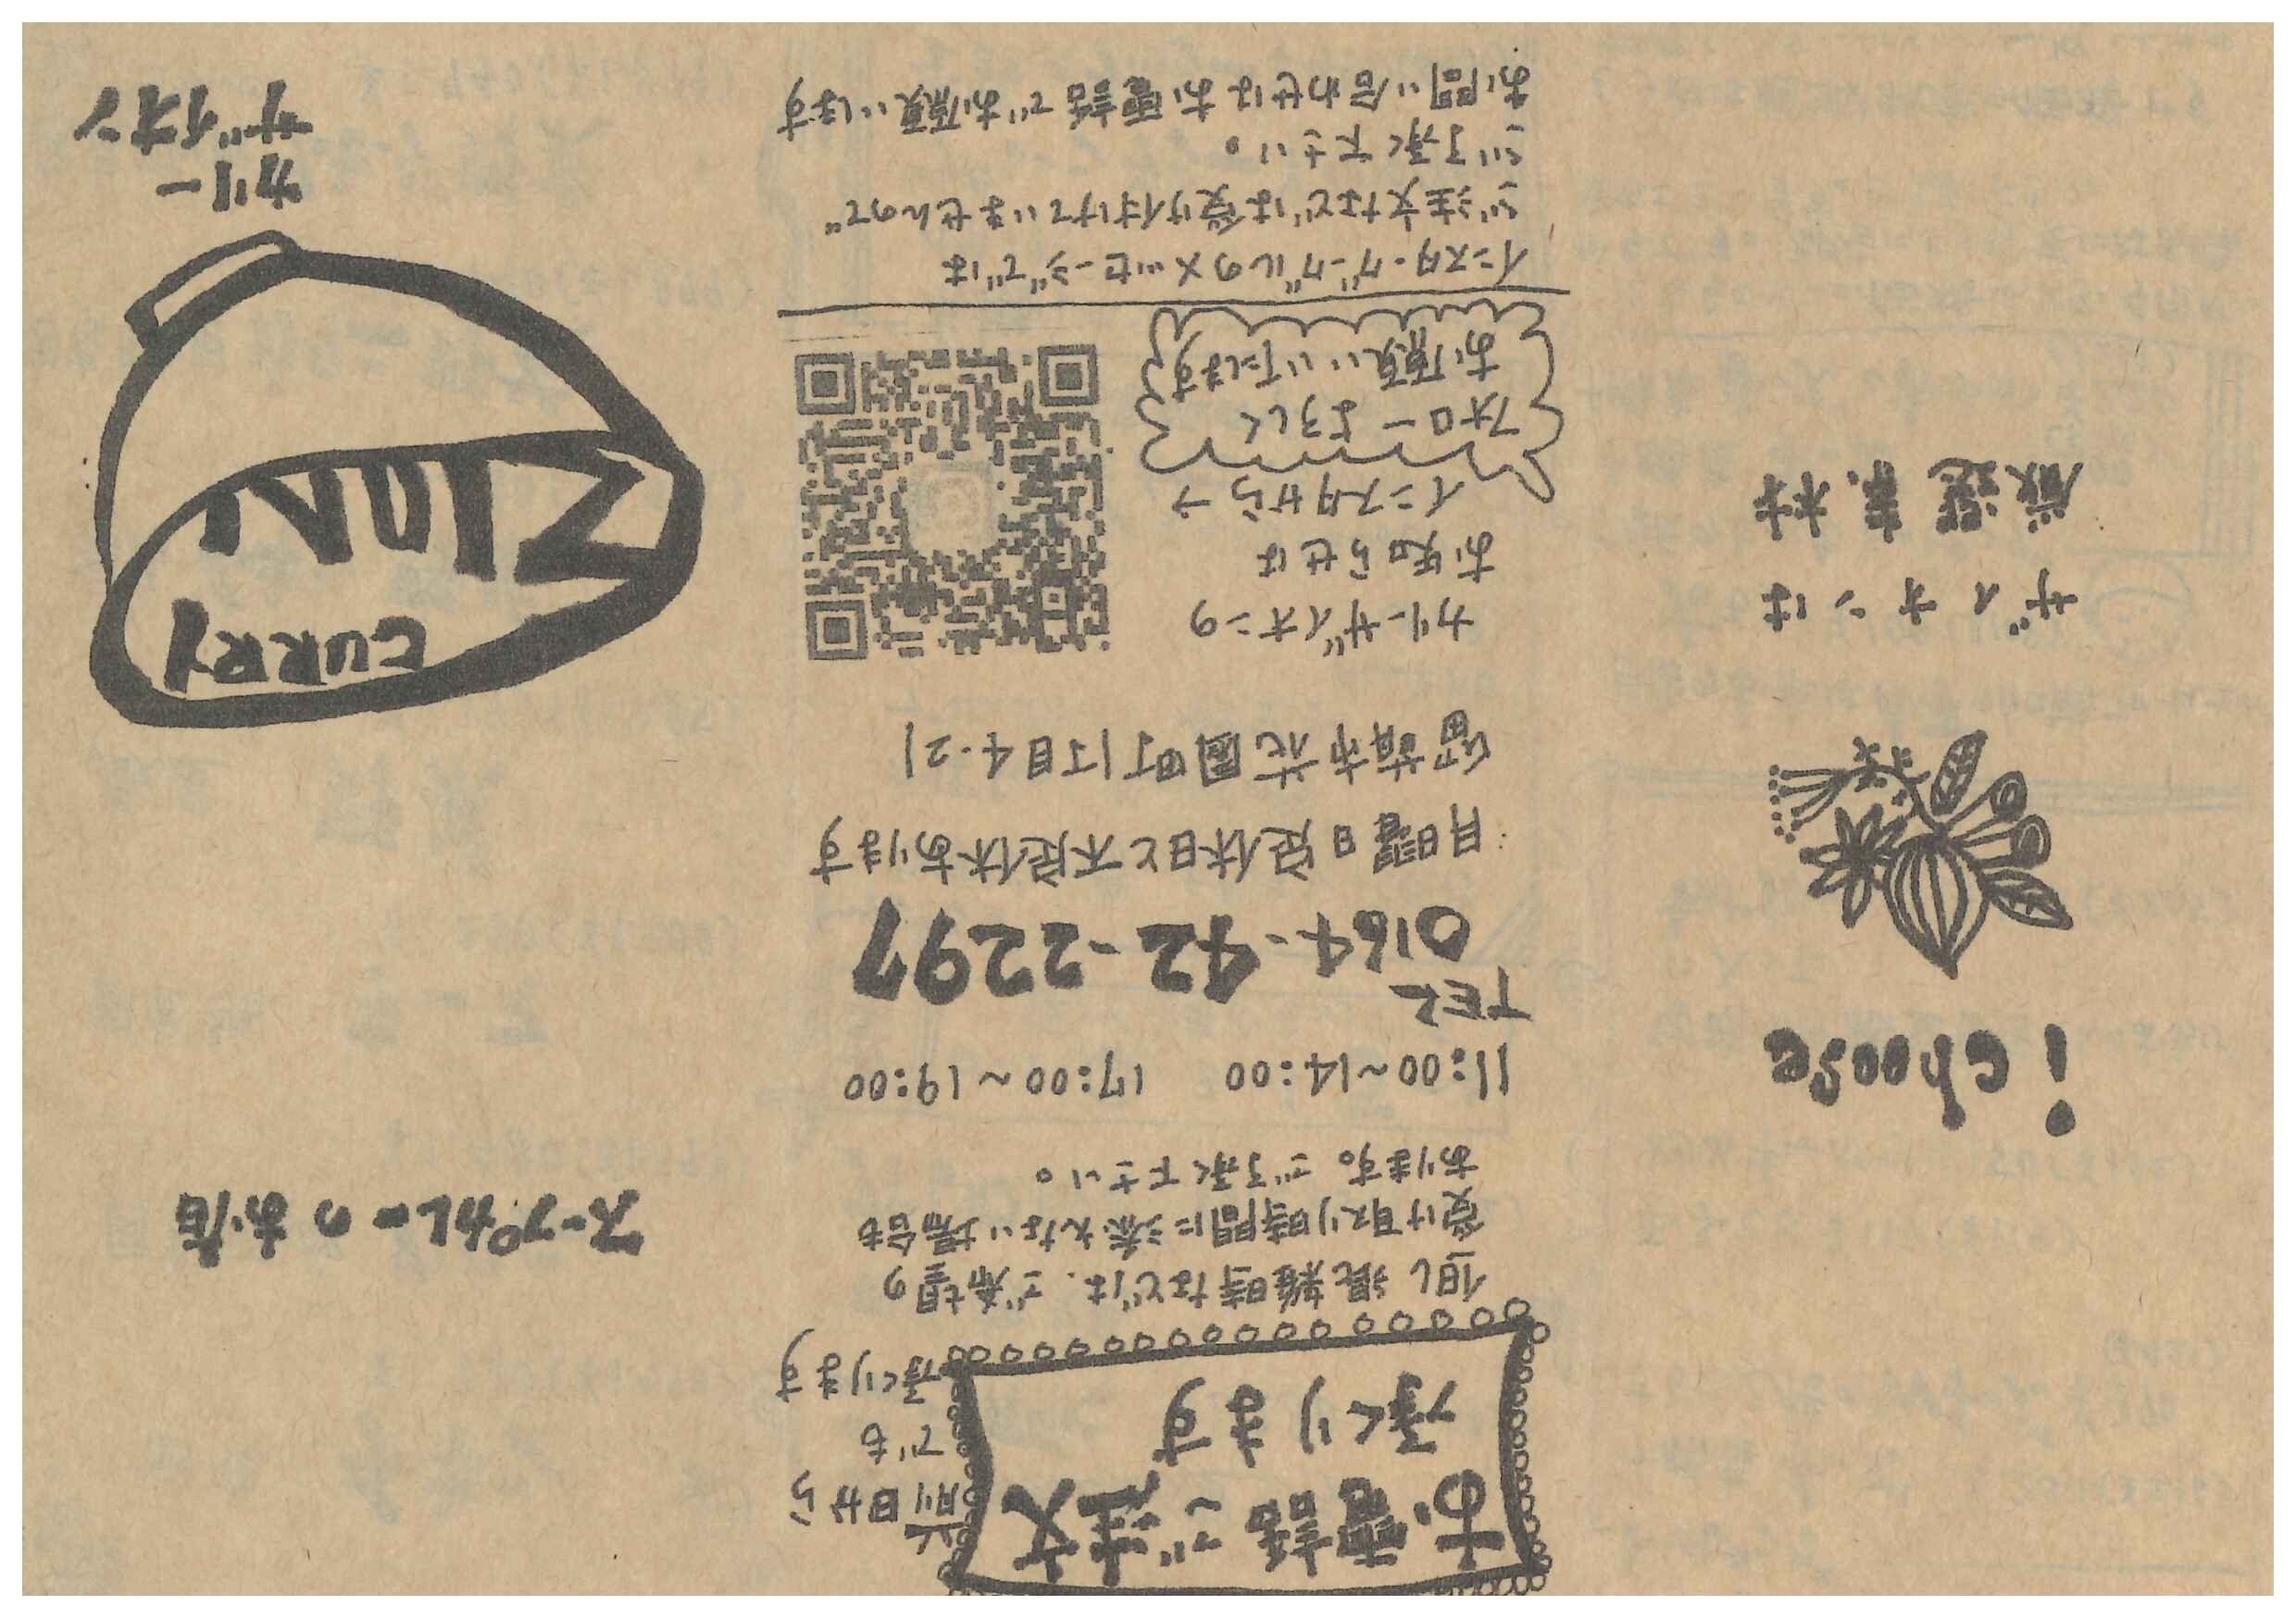 i choose
ザイオンは
厳選素材
お電話ご注文
承くります
前日から
でも
承くります
但し混雑時などは、ご希望の
受け取り時間に添えない場合も
あります。ご了承下さい。
11:00~14:00 17:00~19:00
TEL
0164-42-2297
月曜日定休日と不定休あります
留萌市花園町1丁目4-21
カリーザイオンの
お知らせは
インスタから→
フォローよろしく
お願いいたします
インスタ・グーグルのメッセージでは
ご注文などは受け付けていませんので
ご了承下さい。
お問い合わせはお電話でお願いします
スープカレーのお店
CURRY
ZION
カリー
ザイオン